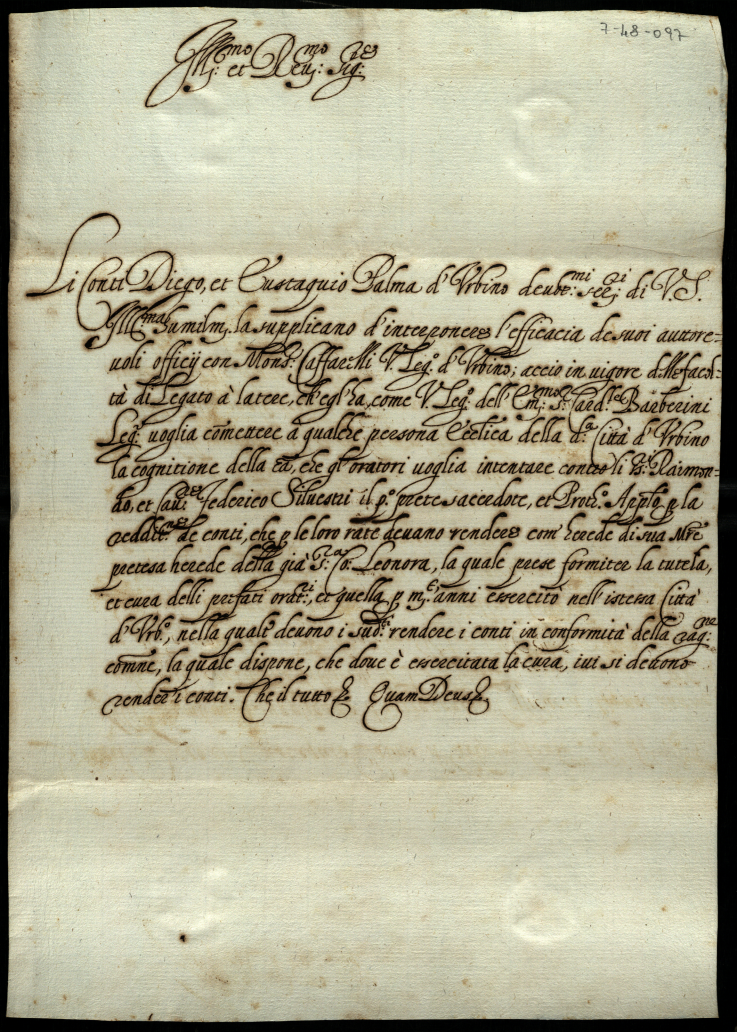 7-48-097
Ill:mo et Reu:mo Sig:re
Li Conti Diego, et Eustaquio Palma d'Vrbino deuot:mi ser:ri di V.S.
Ill:ma humilm. la supplicano d'interponere l'efficacia de suoi auttore=
uoli officij con Mons:r Caffarelli V. Leg:o d'Vrbino; accio in uigore d:lle facol=
tà di Legato à latere, ch'egl'ha, come V. Leg:o dell'Em:mo S:r Card:le Barberini
Leg:o uoglia cõmettere à qualche persona Eccl:ica della d:a Città d'Vrbino
la cognitione della cã, che gl'oratori uoglia intentare contro li SS:ri Raimon=
do, et Federico Siluestri il p:o prete sacerdote, et Prot:o Applo, p la
reddit:ne de conti, che p le loro rate deuano rendere com' herede di sua Mrẽ
pretesa herede della già S:ra Co: Leonora, la quale prese formiter la tutela,
et cura delli prefati orat:ri, et quella p m:ti anni essercitò nell'istessa Città
d'Vrb:o, nella quale deuono i sud:i rendere i conti in conformità della rag:ne
comne, la quale dispone, che doue è essercitata la cura, iui si deuono
render i conti. Che il tutto &. Quam Deus &.